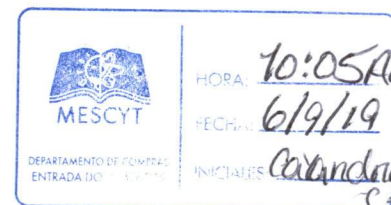 MESCYT
DEPARTAMENTO DE COMPRAS
ENTRADA
HORA: 10:05
FECHA: 6/9/19
INICIALES